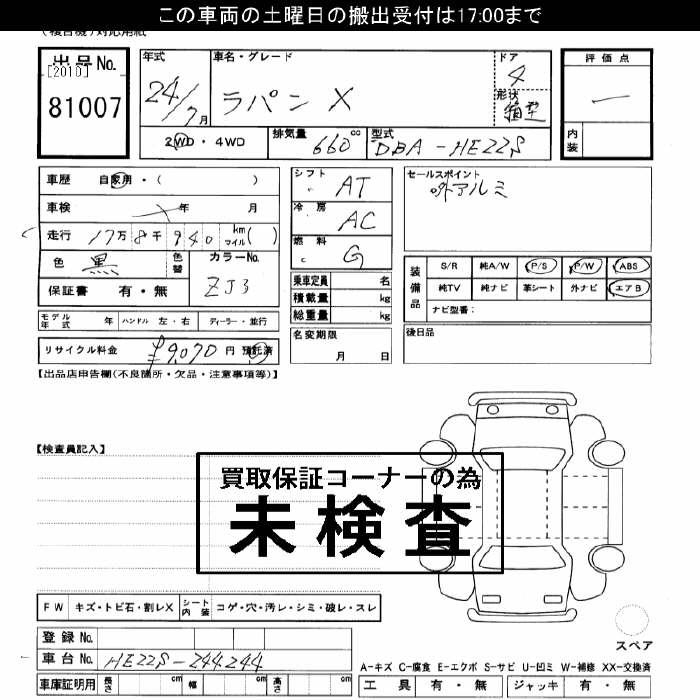 この車両の土曜日の搬出受付は17:00まで
(複合機)対応用紙
出品No.
[2010]
81007
年式
24/7月
車名・グレード
ラパン X
ドア
4
形状
箱型
評価点
内装
2WD・4WD
排気量
660cc
型式
DBA-HE22S
車歴 自家用・( )
車検 年 月
走行 17万8千940 km マイル( )
色 黒
色替
カラーNo.
ZJ3
保証書 有・無
シフト AT
冷房 AC
燃料 G
乗車定員 名
積載量 kg
総重量 kg
セールスポイント
外アルミ
装備品
S/R 純A/W P/S P/W ABS
純TV 純ナビ 革シート 外ナビ エアB
ナビ型番:
モデル年式 年 ハンドル 左・右 ディーラー・並行
名変期限
月 日
後日品
リサイクル料金 ¥9,070 円 預託済
【出品店申告欄(不良箇所・欠品・注意事項等)】
【検査員記入】
買取保証コーナーの為
未検査
FW キズ・トビ石・割レX シート内装 コゲ・穴・汚レ・シミ・破レ・スレ
登録No.
車台No. HE22S-244244
車庫証明用 長さ cm 幅 cm 高さ cm
スペア
A-キズ C-腐食 E-エクボ S-サビ U-凹ミ W-補修 XX-交換済
工具 有・無 ジャッキ 有・無